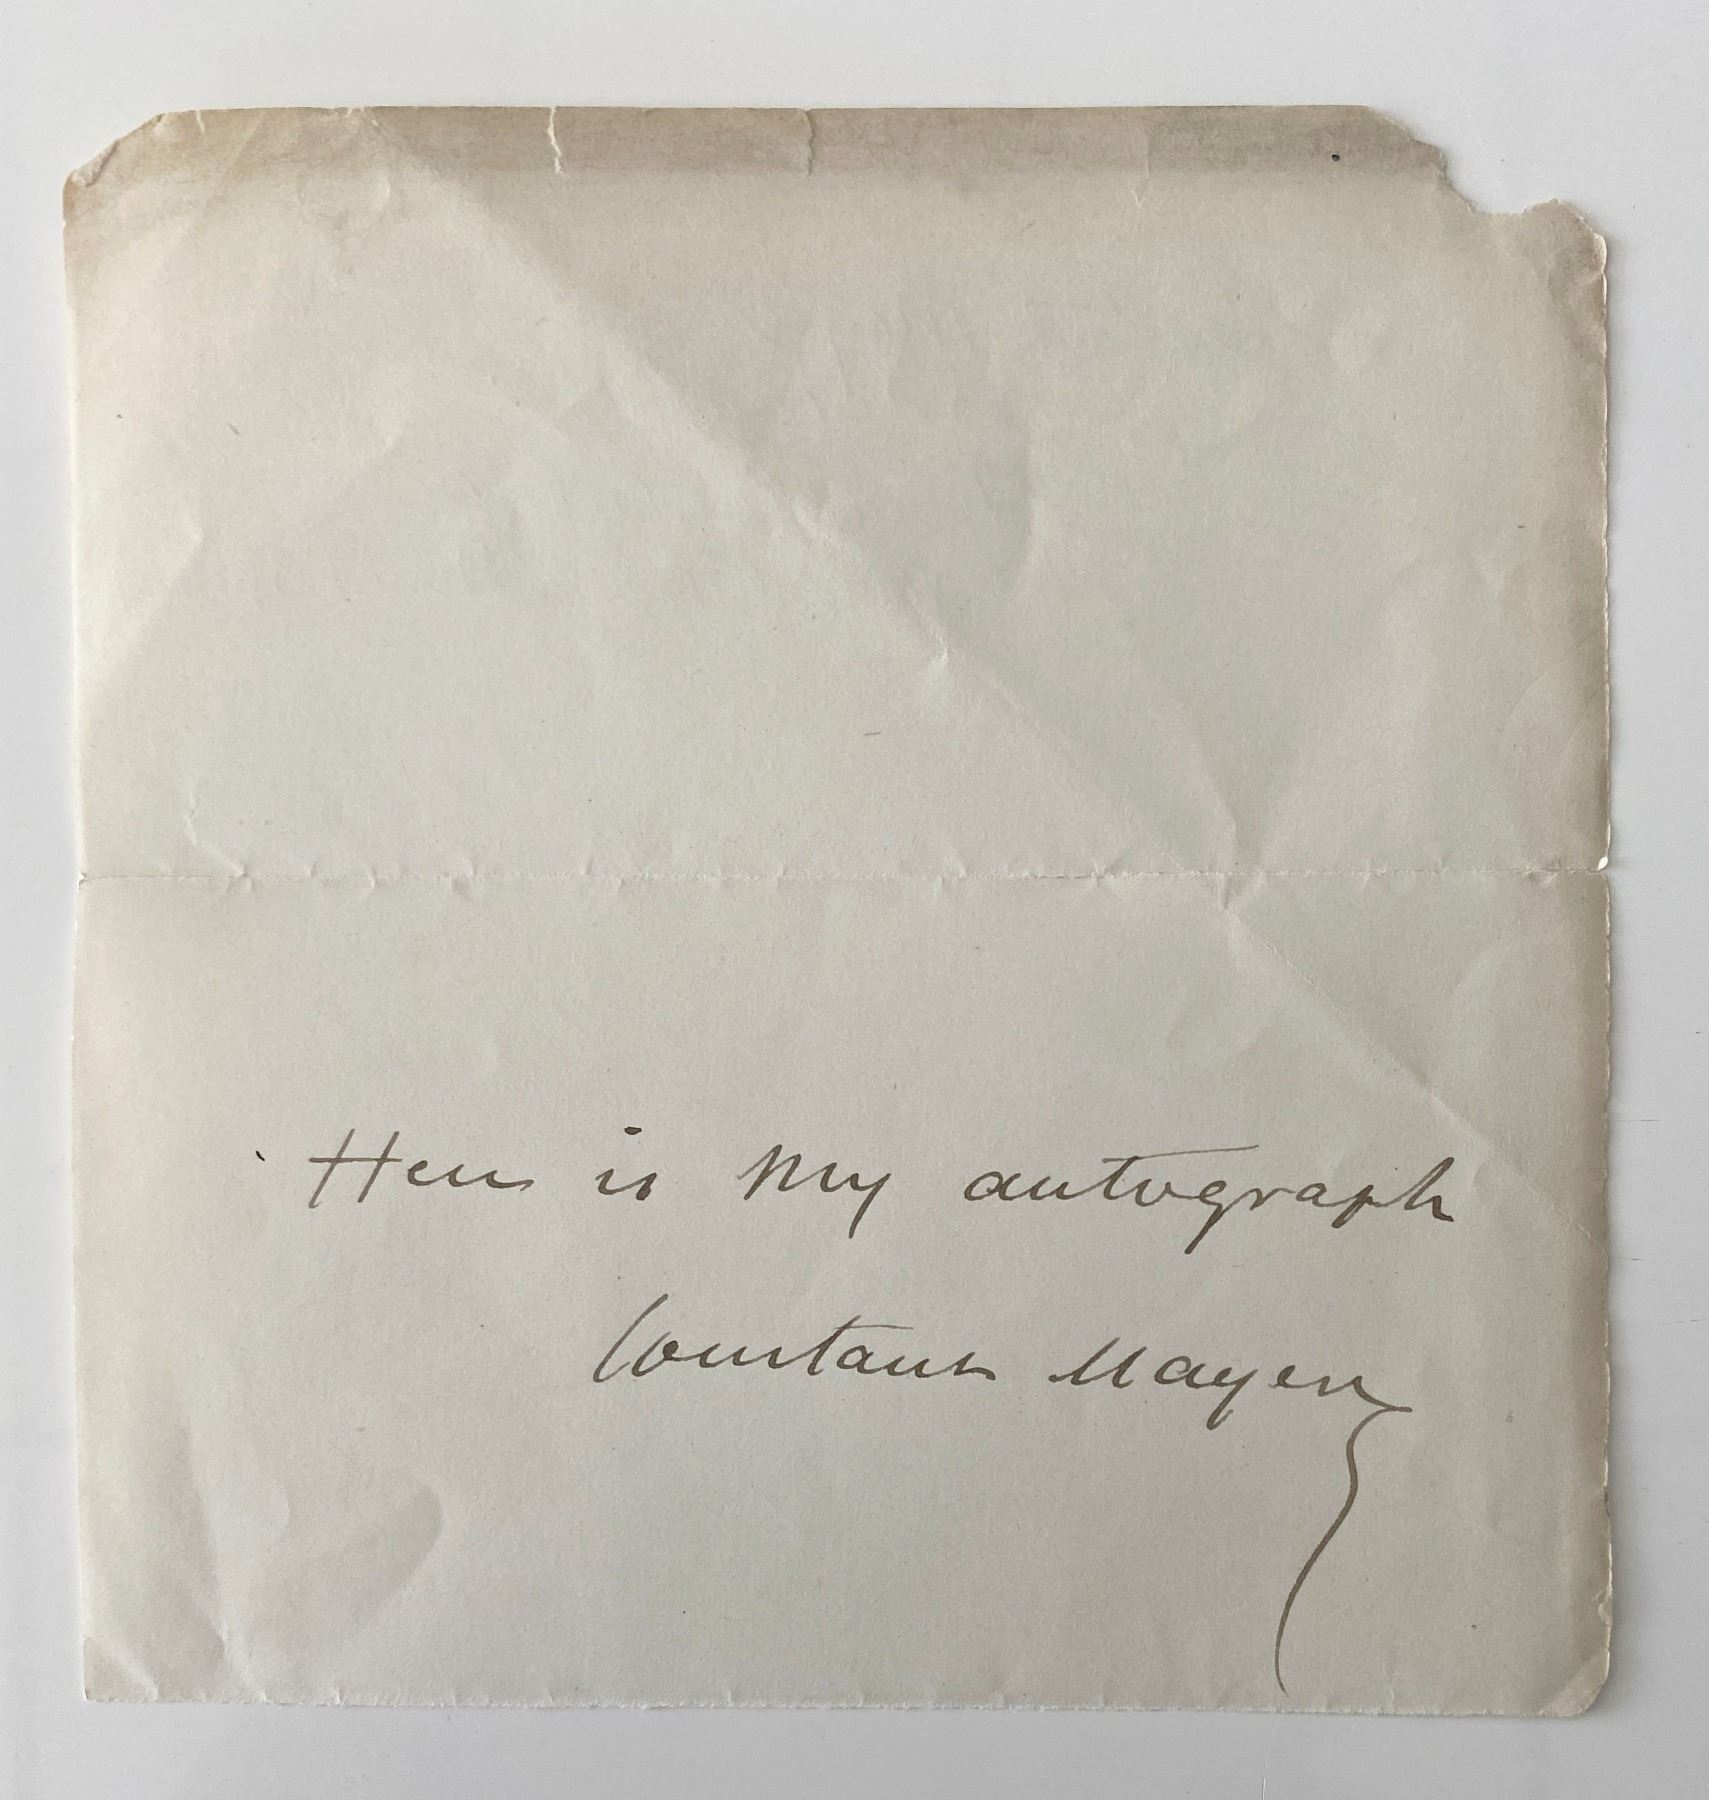 Here is My autograph
Constant Mayer